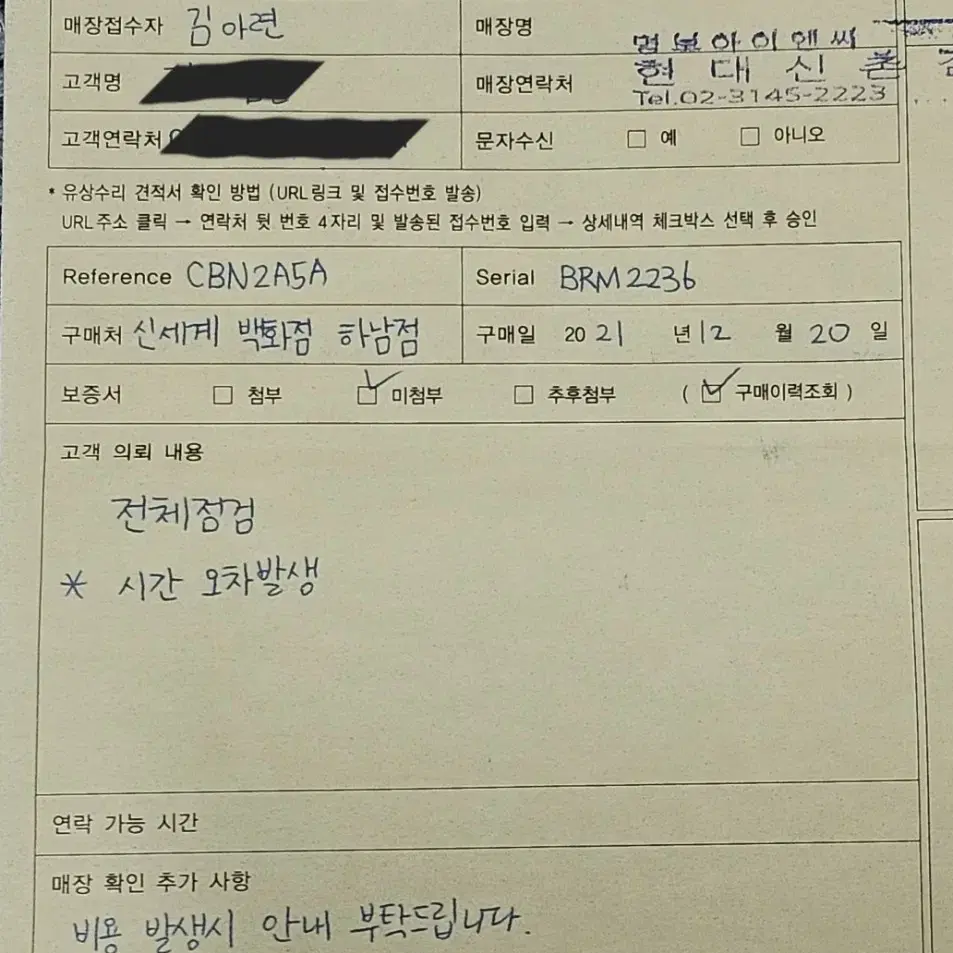 매장접수자 김아련 매장명 명보아이엔씨
고객명 매장연락처 현대신촌
Tel.02-3145-2223
고객연락처 문자수신 □ 예 □ 아니오
* 유상수리 견적서 확인 방법 (URL링크 및 접수번호 발송)
URL주소 클릭 → 연락처 뒷 번호 4자리 및 발송된 접수번호 입력 → 상세내역 체크박스 선택 후 승인
Reference CBN2A5A Serial BRM2236
구매처 신세계 백화점 하남점 구매일 2021 년 12 월 20 일
보증서 □ 첨부 ☑ 미첨부 □ 추후첨부 ( ☑ 구매이력조회 )
고객 의뢰 내용
전체점검
* 시간 오차발생
연락 가능 시간
매장 확인 추가 사항
비용 발생시 안내 부탁드립니다.